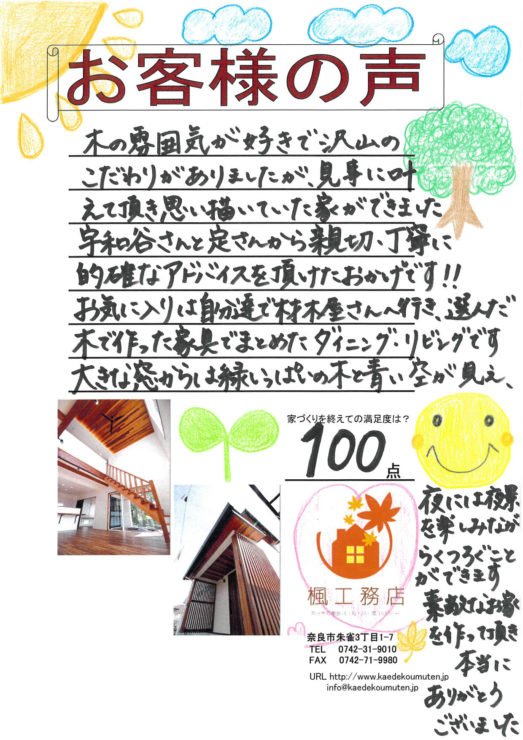 お客様の声
木の雰囲気が好きで沢山の
こだわりがありましたが、見事に叶
えて頂き思い描いていた家ができました
宇和谷さんと定さんから親切、丁寧に
的確なアドバイスを頂けたおかげです!!
お気に入りは自分達で材木屋さんへ行き、選んだ
木で作った家具でまとめたダイニング・リビングです
大きな窓からは緑いっぱいの木と青い空が見え、
家づくりを終えての満足度は?
100点
夜には夜景
を楽しみなが
らくつろぐこと
ができます
素敵なお家
を作って頂き
本当に
ありがとう
ございました
楓工務店
奈良市朱雀3丁目1-7
TEL 0742-31-9010
FAX 0742-71-9980
URL http://www.kaedekoumuten.jp
info@kaedekoumuten.jp